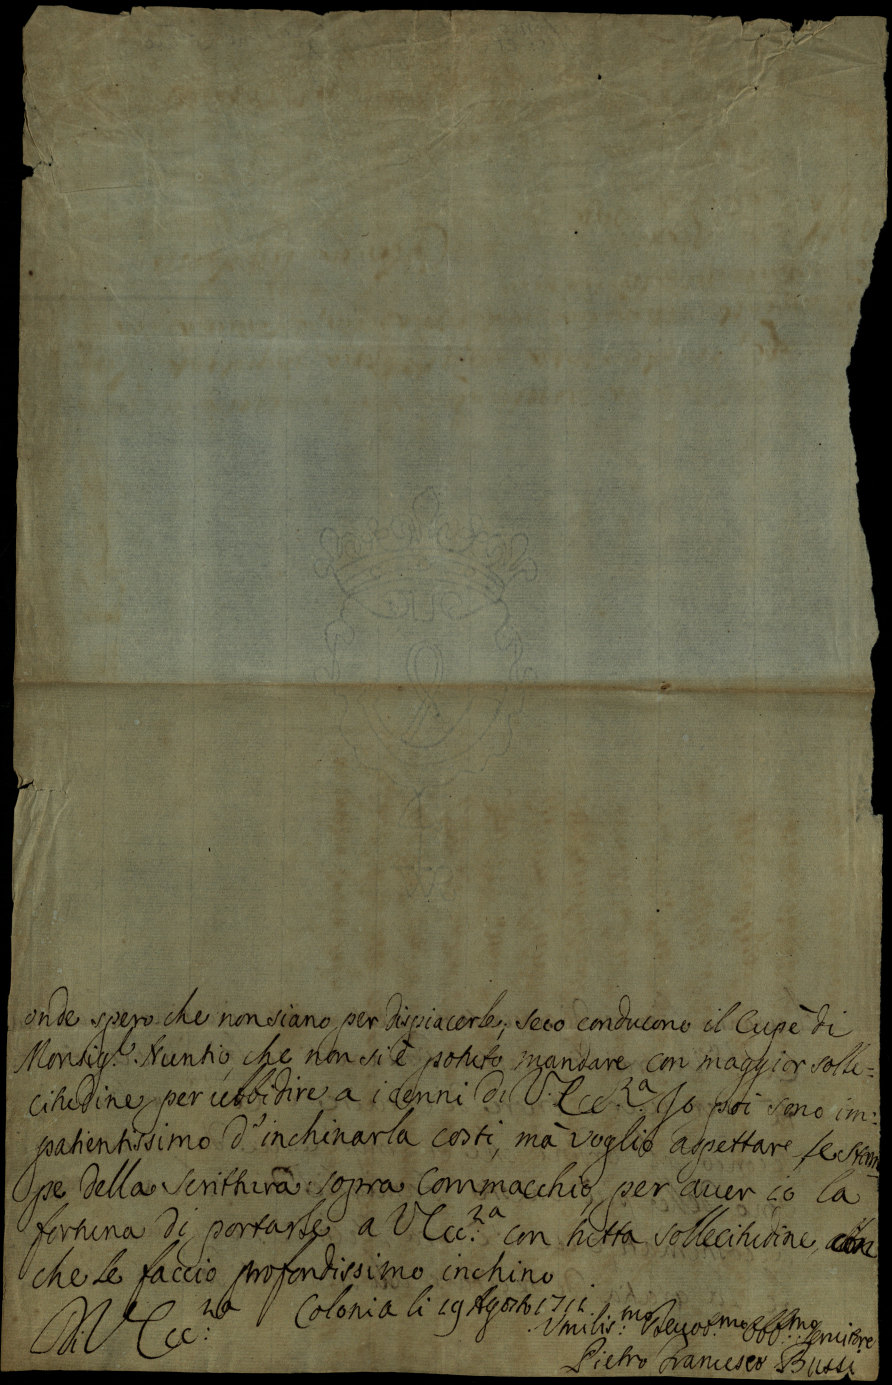 onde spero che non siano per dispiacerle; seco conducono il Cupè di
Monsig.r Nuntio, che non si è potuto mandare con maggior solle=
citudine, per ubbidire a i cenni di V. Ecc.za Io poi sono im=
patientissimo d'inchinarla costì, mà voglio aspettare le stam=
pe della scrittura sopra Commacchio, per aver io la
fortuna di portarle a V Ecc.za con tutta sollecitudine,
che le faccio profondissimo inchino
Di V Ecc:za Colonia li 19 Agosto 1711.
Umilis.mo Devot.mo Obb.mo Servitore
Pietro Francesco Bussi